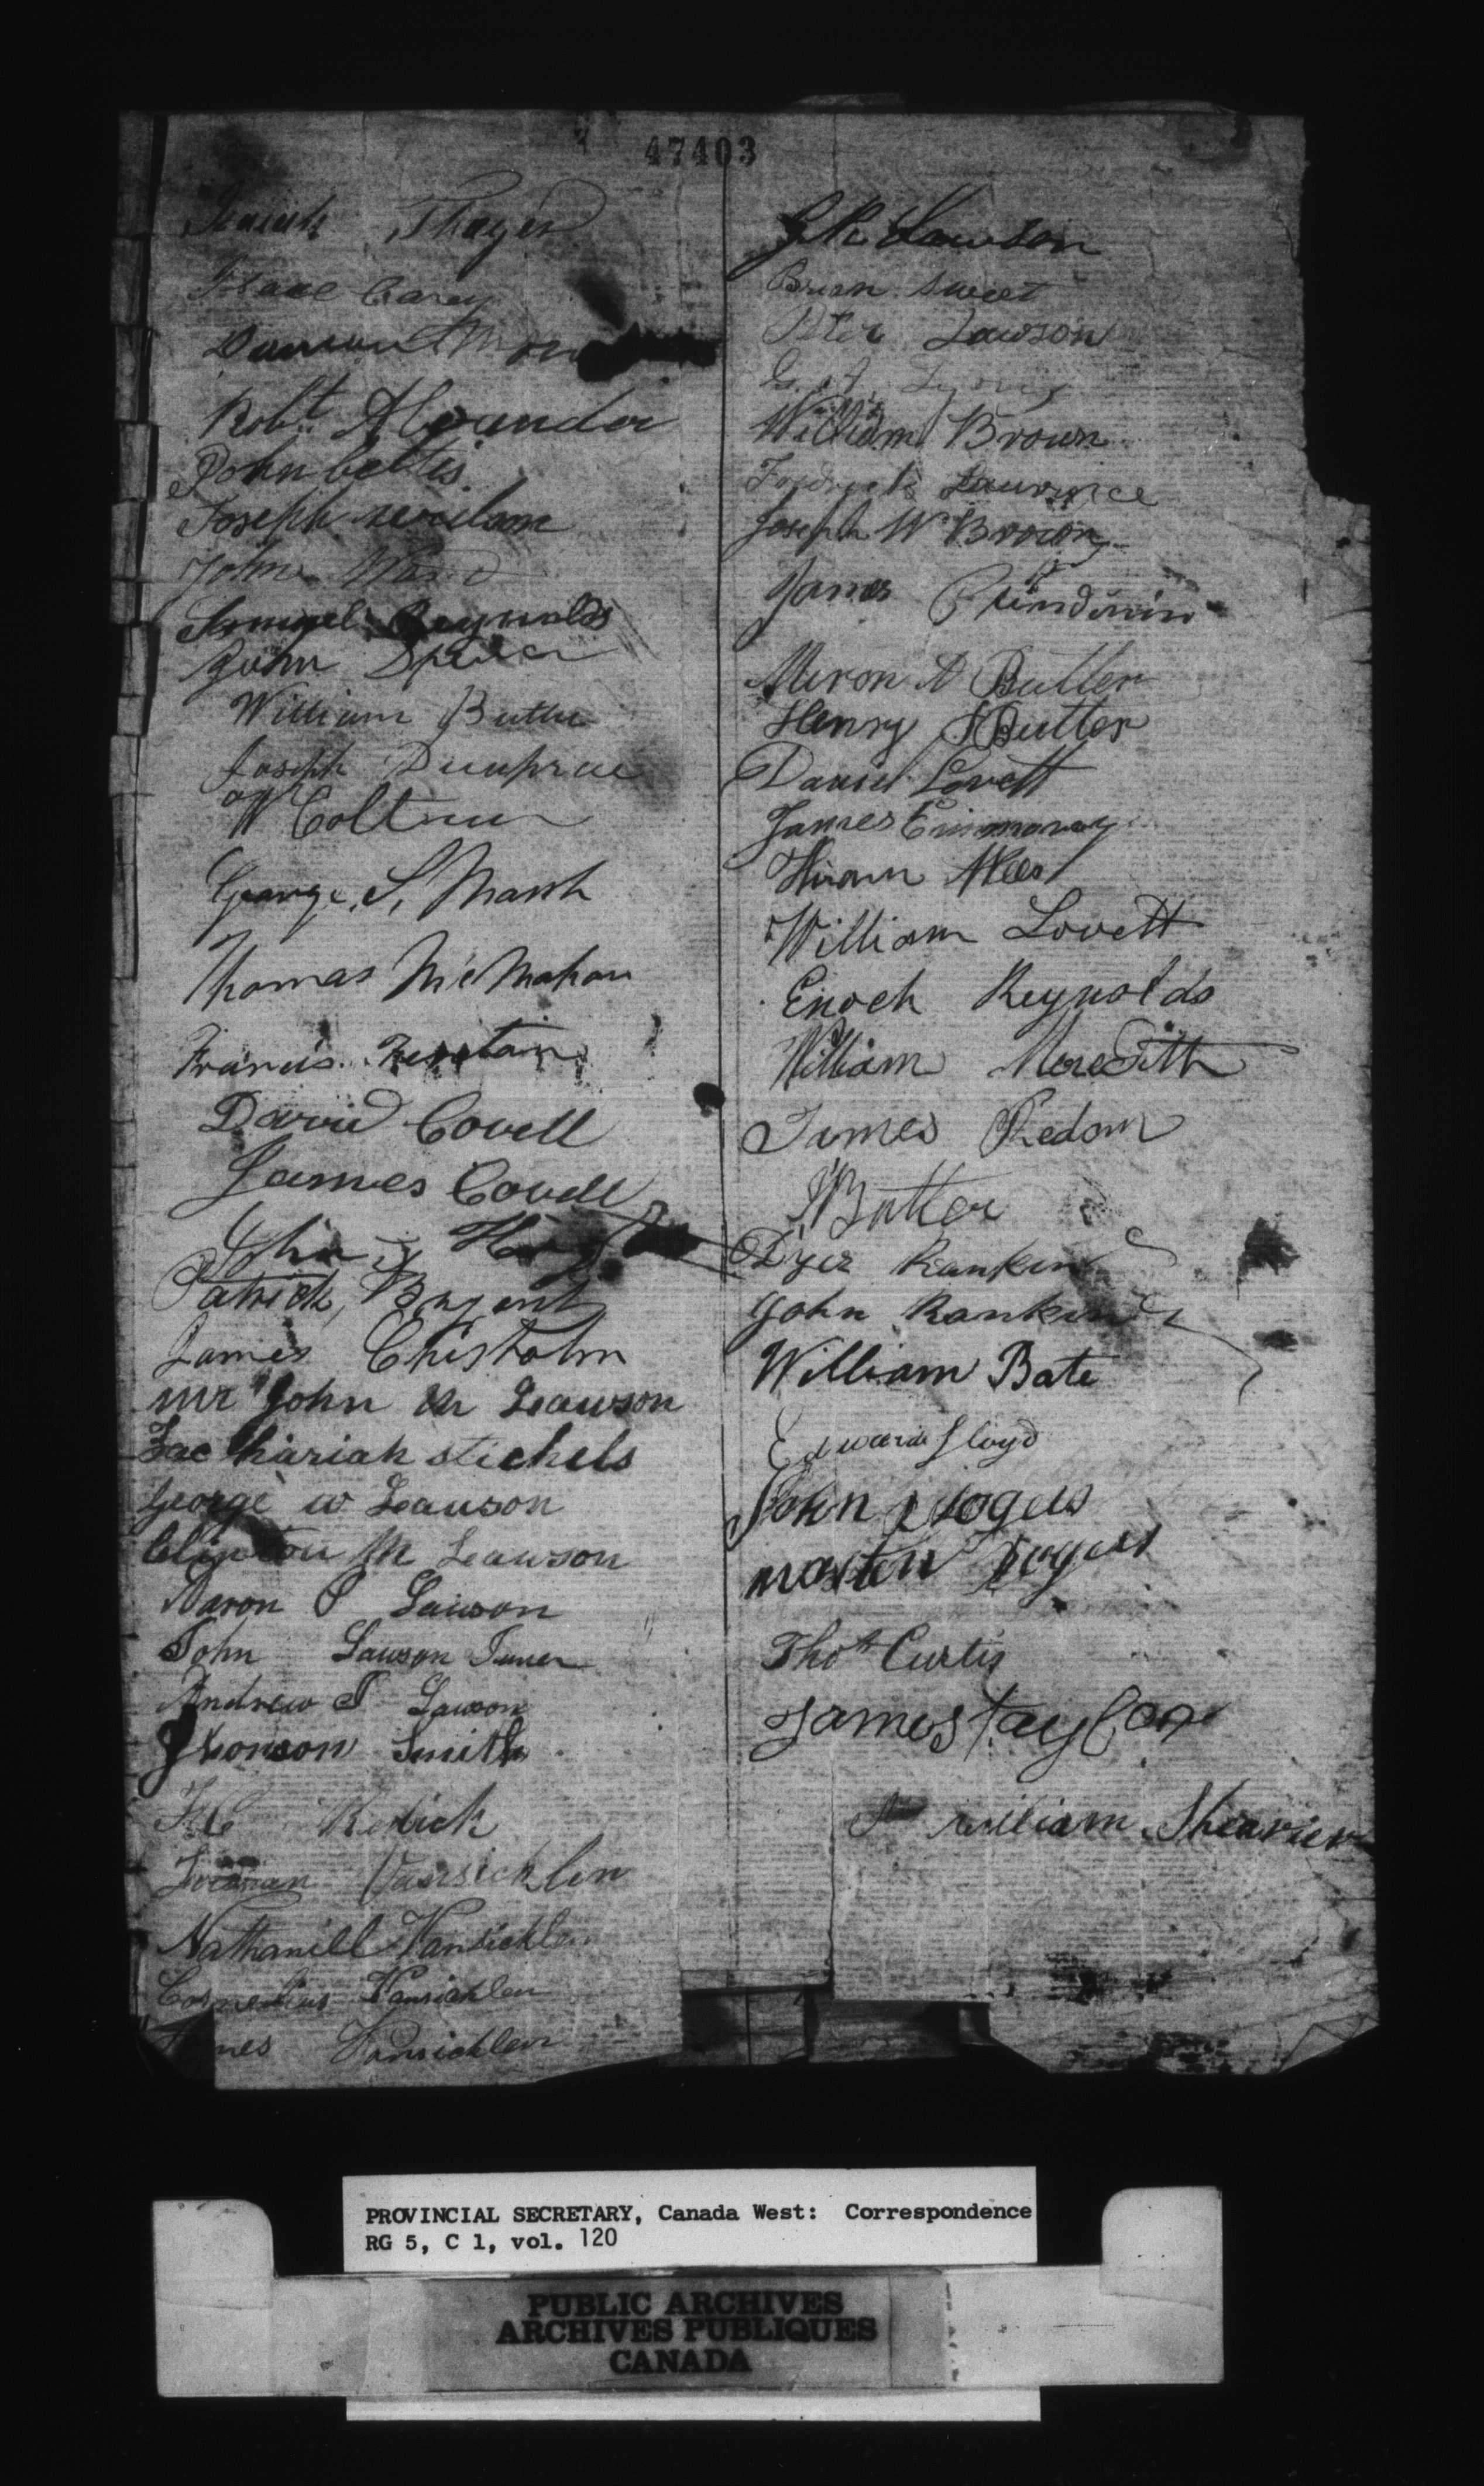 47403
Isaiah Thayer
Isaac Carey
Robt. Alexander
John
Joseph
John
Samuel Reynolds
John Spencer
William Butler
Joseph Dunprue
W Coltman
George S. Marsh
Thomas McMahon
Francis
David Covell
James Covell
John
Patrick Bryant
James Chisholm
mr John M Lawson
Zacthariah stickels
George w Lawson
Clinton M Lawson
Aaron P Lawson
John Lawson Juner
Andrew S Lawson
Smith
Redick
Vansicklen
Nathaniell Vansicklen
Cornelius Vansicklen
Vansicklen
Lawson
Brian Sweet
Peter Lawson
G. A. Lyons
William Brown
Fredrick Lawrence
Joseph W Brown
James
Miron A Butler
Henry Butler
Daniel Lovett
James
Hiram
William Lovett
Enoch Reynolds
William Meredith
James Redom
Butler
Dyer Rankin
John Rankin
William Bate
Edward Lloyd
John Rogers
Rogers
Thos Curtis
James taylor
William Shearier
PROVINCIAL SECRETARY, Canada West: Correspondence
RG 5, C 1, vol. 120
PUBLIC ARCHIVES
ARCHIVES PUBLIQUES
CANADA